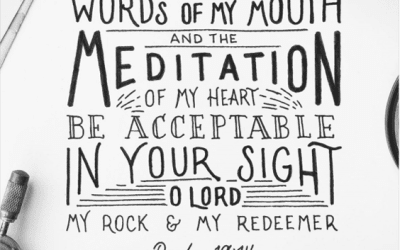 WORDS OF MY MOUTH
AND THE
MEDITATION
OF MY HEART
BE ACCEPTABLE
IN YOUR SIGHT
O LORD
MY ROCK & MY REDEEMER